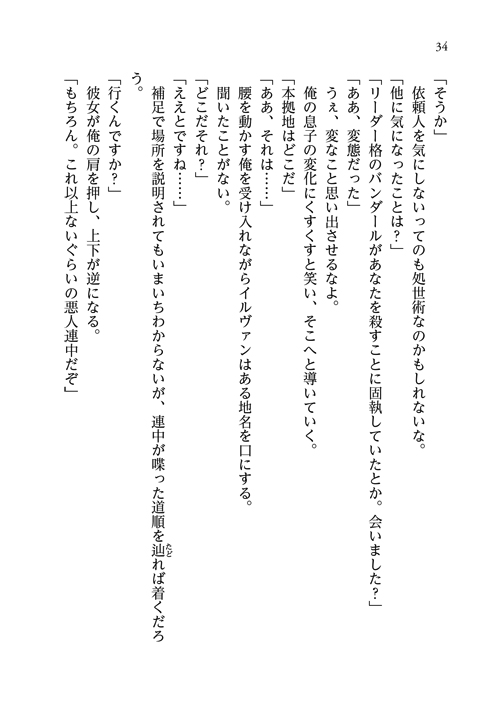 34
「そうか」
依頼人を気にしないってのも処世術なのかもしれないな。
「他に気になったことは？」
「リーダー格のバンダールがあなたを殺すことに固執していたとか。会いました？」
「ああ、変態だった」
うぇ、変なこと思い出させるなよ。
俺の息子の変化にくすくすと笑い、そこへと導いていく。
「本拠地はどこだ」
「ああ、それは……」
腰を動かす俺を受け入れながらイルヴァンはある地名を口にする。
聞いたことがない。
「どこだそれ？」
「ええとですね……」
補足で場所を説明されてもいまいちわからないが、連中が喋った道順を辿れば着くだろ
う。
「行くんですか？」
彼女が俺の肩を押し、上下が逆になる。
「もちろん。これ以上ないぐらいの悪人連中だぞ」